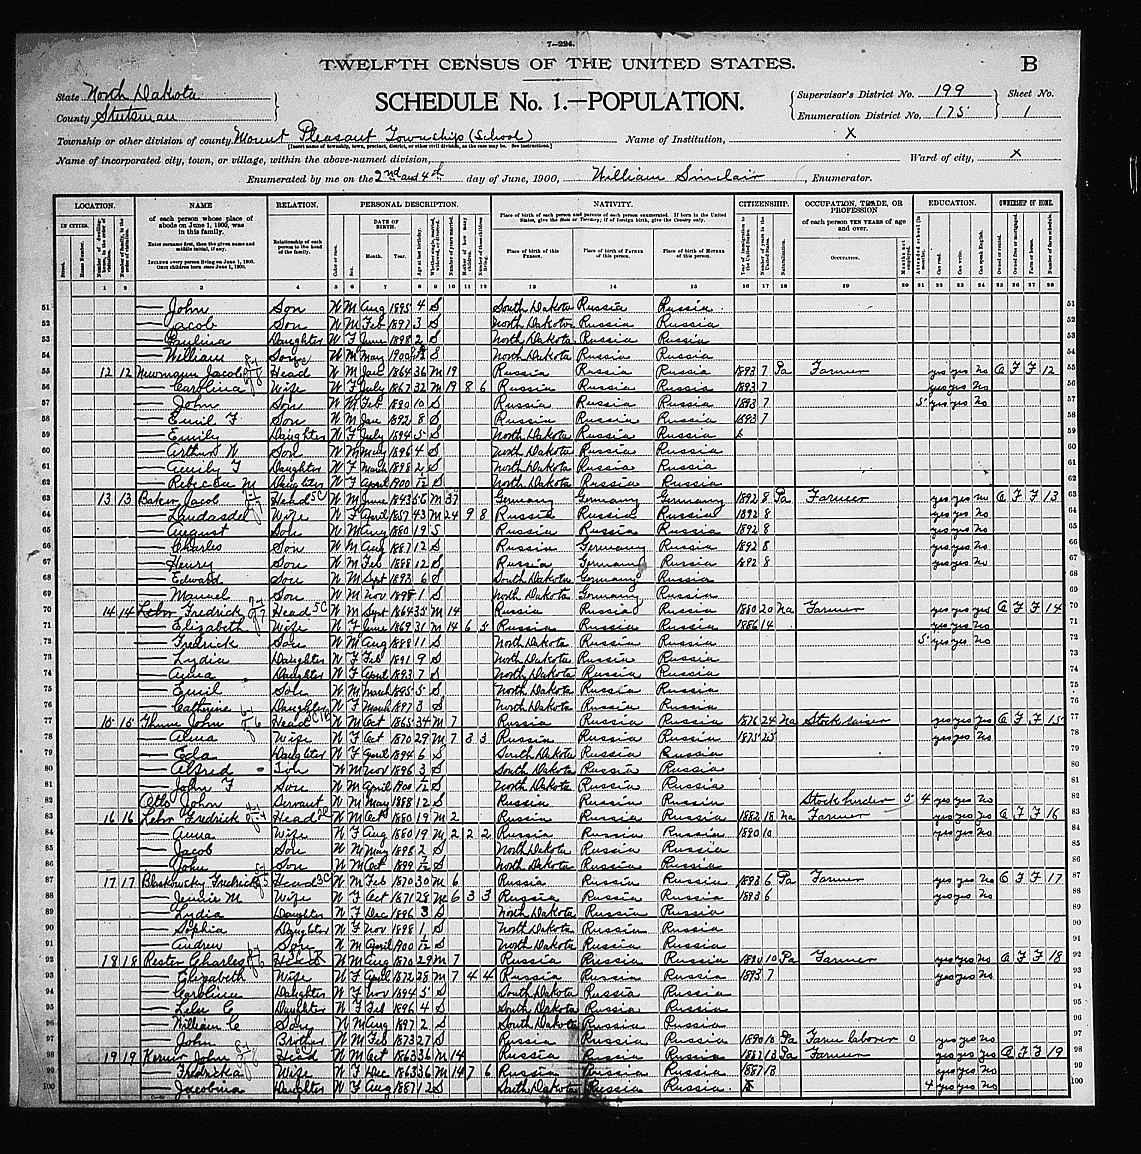 7—224.
TWELFTH CENSUS OF THE UNITED STATES.
B
State North Dakota
County Stutsman
SCHEDULE No. 1.—POPULATION.
Supervisor's District No. 199
Enumeration District No. 175
Sheet No. 1
Township or other division of county Mount Pleasant Township (School) Name of Institution, X
Name of incorporated city, town, or village, within the above-named division, Ward of city, X
Enumerated by me on the 2nd and 4th day of June, 1900, William Sinclair, Enumerator.
LOCATION. NAME RELATION. PERSONAL DESCRIPTION. NATIVITY. CITIZENSHIP. OCCUPATION, TRADE, OR PROFESSION EDUCATION. OWNERSHIP OF HOME.
IN CITIES. of each person whose place of abode on June 1, 1900, was in this family. Relationship of each person to the head of the family. DATE OF BIRTH. of each person TEN YEARS of age and over.
Enter surname first, then the given name and middle initial, if any.
INCLUDE every person living on June 1, 1900. OMIT children born since June 1, 1900.
Month. Year. Place of birth of this PERSON. Place of birth of FATHER of this person. Place of birth of MOTHER of this person. OCCUPATION.
1 2 3 4 5 6 7 8 9 10 11 12 13 14 15 16 17 18 19 20 21 22 23 24 25 26 27 28
51 — John Son W M Aug 1895 4 S South Dakota Russia Russia 51
52 — Jacob Son W M Feb 1897 3 S North Dakota Russia Russia 52
53 — Paulina Daughter W F June 1898 2 S North Dakota Russia Russia 53
54 — William Son W M May 1900 S North Dakota Russia Russia 54
55 12 12 Newmann Jacob Head W M Jan 1864 36 M 19 Russia Russia Russia 1893 7 Pa Farmer yes yes No O F F 12 55
56 — Carolina Wife W F July 1867 32 M 19 8 6 Russia Russia Russia 1893 7 yes yes No 56
57 — John Son W M Feb 1890 10 S Russia Russia Russia 1893 7 5 yes yes No 57
58 — Emil F Son W M Jan 1892 8 S Russia Russia Russia 1893 7 58
59 — Emily Daughter W F July 1894 5 S North Dakota Russia Russia 59
60 — Arthur W Son W M May 1896 4 S North Dakota Russia Russia 60
61 — Amily F Daughter W F March 1898 2 S North Dakota Russia Russia 61
62 — Rebecca M Daughter W F April 1900 1/12 S North Dakota Russia Russia 62
63 13 13 Baker Jacob Head W M June 1843 56 M 37 Germany Germany Germany 1892 8 Pa Farmer yes yes No O F F 13 63
64 — Wife W F April 1857 43 M 24 9 8 Russia Russia Russia 1892 8 yes yes No 64
65 — August Son W M Aug 1880 19 S Russia Russia Russia 1892 8 yes yes No 65
66 — Charles Son W M Aug 1887 12 S Russia Germany Russia 1892 8 yes yes No 66
67 — Henry Son W M Feb 1888 12 S Russia Germany Russia 1892 8 yes yes No 67
68 — Edward Son W M Sept 1893 6 S South Dakota Germany Russia 68
69 — Manuel Son W M Nov 1898 1 S North Dakota Germany Russia 69
70 14 14 Lehr Fredrick Head W M Sept 1864 35 M 14 Russia Russia Russia 1880 20 Na Farmer yes yes yes O F F 14 70
71 — Elizabeth Wife W F June 1869 31 M 14 6 5 Russia Russia Russia 1886 14 yes yes No 71
72 — Fredrick Son W M Aug 1888 11 S North Dakota Russia Russia 5 yes yes No 72
73 — Lydia Daughter W F Feb 1891 9 S North Dakota Russia Russia 73
74 — Anna Daughter W F April 1893 7 S North Dakota Russia Russia 74
75 — Emil Son W M March 1895 5 S North Dakota Russia Russia 75
76 — Cathrine Daughter W F March 1897 3 S North Dakota Russia Russia 76
77 15 15 John Head W M Oct 1865 34 M 7 Russia Russia Russia 1876 24 Na Stock raiser yes yes yes O F F 15 77
78 — Alma Wife W F Oct 1870 29 M 7 3 3 Russia Russia Russia 1875 25 yes yes No 78
79 — Eda Daughter W F April 1894 6 S South Dakota Russia Russia 79
80 — Alfred Son W M Nov 1896 3 S South Dakota Russia Russia 80
81 — John F Son W M April 1900 1/12 S North Dakota Russia Russia 81
82 Otto John Servant W M May 1888 12 S Russia Russia Russia Stock herder 5 4 yes yes No 82
83 16 16 Lehr Fredrick Head W M Oct 1880 19 M 2 Russia Russia Russia 1882 18 Na Farmer yes yes yes O F F 16 83
84 — Anna Wife W F Aug 1880 19 M 2 2 2 Russia Russia Russia 1890 10 yes yes No 84
85 — Jacob Son W M May 1898 2 S North Dakota Russia Russia 85
86 — John Son W M Oct 1899 7/12 S North Dakota Russia Russia 86
87 17 17 Blaskowsky Fredrick Head W M Feb 1870 30 M 6 Russia Russia Russia 1893 6 Pa Farmer yes yes No O F F 17 87
88 — Jennie M Wife W F Oct 1871 28 M 6 3 3 Russia Russia Russia 1893 6 yes yes No 88
89 — Lydia Daughter W F Dec 1896 3 S North Dakota Russia Russia 89
90 — Sophia Daughter W F Nov 1898 1 S North Dakota Russia Russia 90
91 — Andrew Son W M April 1900 1/12 S North Dakota Russia Russia 91
92 18 18 Rester Charles Head W M Aug 1870 29 M 7 Russia Russia Russia 1890 10 Pa Farmer yes yes No O F F 18 92
93 — Elizabeth Wife W F April 1872 28 M 7 4 4 Russia Russia Russia 1893 7 yes yes No 93
94 — Carolina Daughter W F Nov 1894 5 S South Dakota Russia Russia 94
95 — C Daughter W F Feb 1896 4 S South Dakota Russia Russia 95
96 — William C Son W M Aug 1897 2 S South Dakota Russia Russia 96
97 — John Brother W M Feb 1873 27 S Russia Russia Russia 1890 10 Pa Farm laborer 0 yes yes No 97
98 19 19 John Head W M Oct 1863 36 M 14 Russia Russia Russia 1887 13 Pa Farmer yes yes yes O F F 19 98
99 — Fredricka Wife W F Dec 1863 36 M 14 7 6 Russia Russia Russia 1887 13 yes yes No 99
100 — Jacobina Daughter W F Aug 1887 12 S South Dakota Russia Russia 4 yes yes No 100